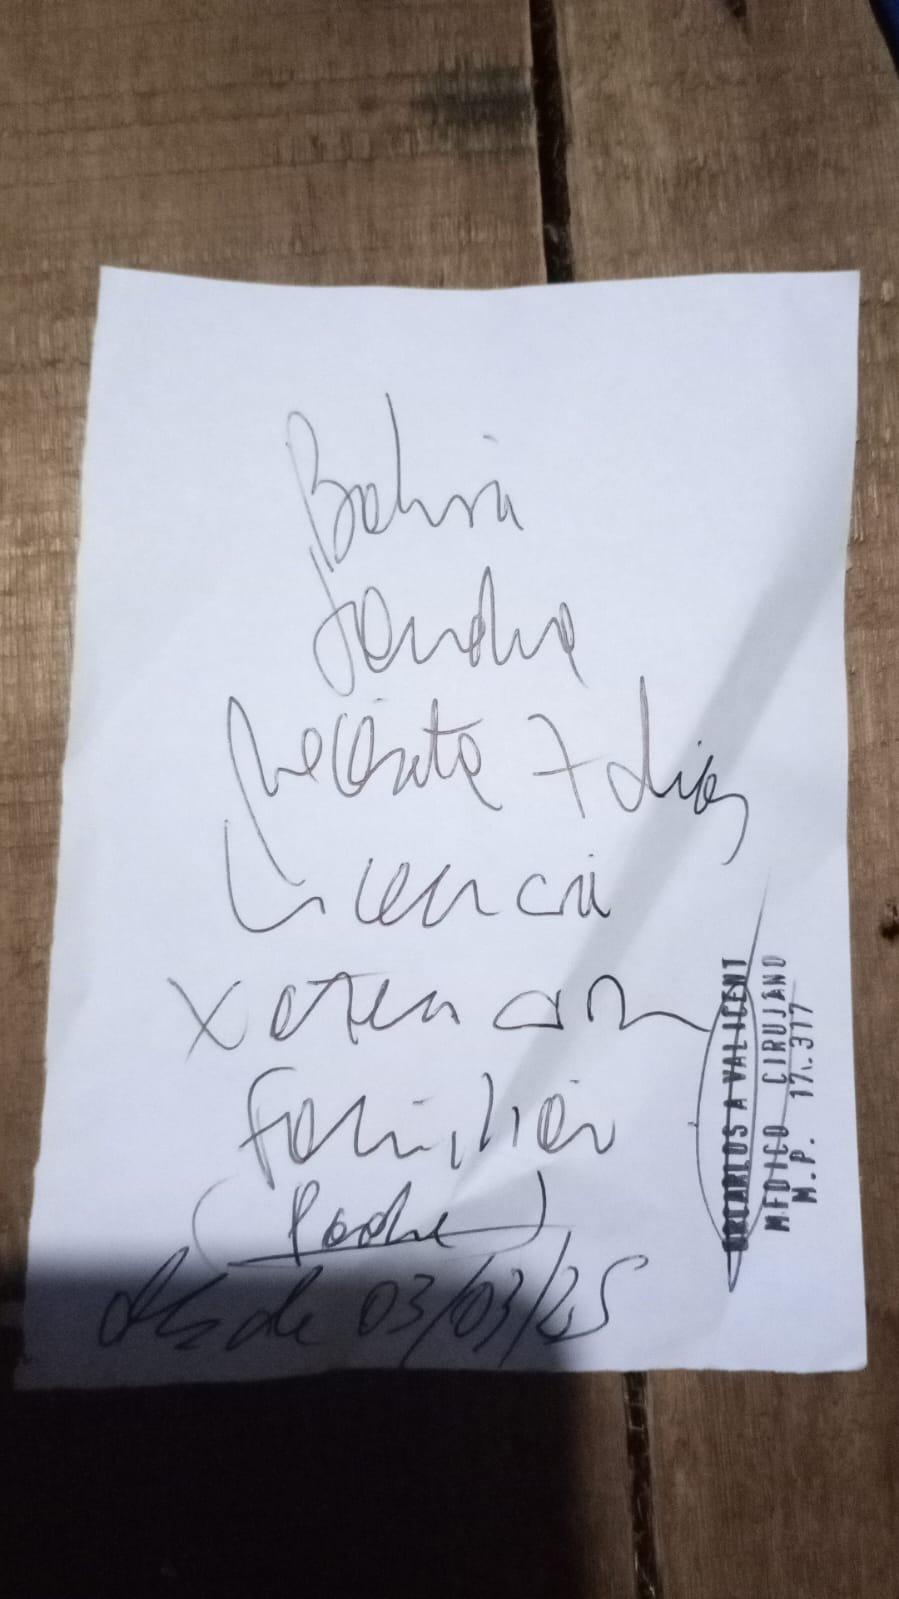 Sandra
Necesita 7 dias
Licencia
x atencion
familiar
(Padre)
desde 03/03/25
DR CARLOS A VALICENT
MEDICO CIRUJANO
M.P. 17.377